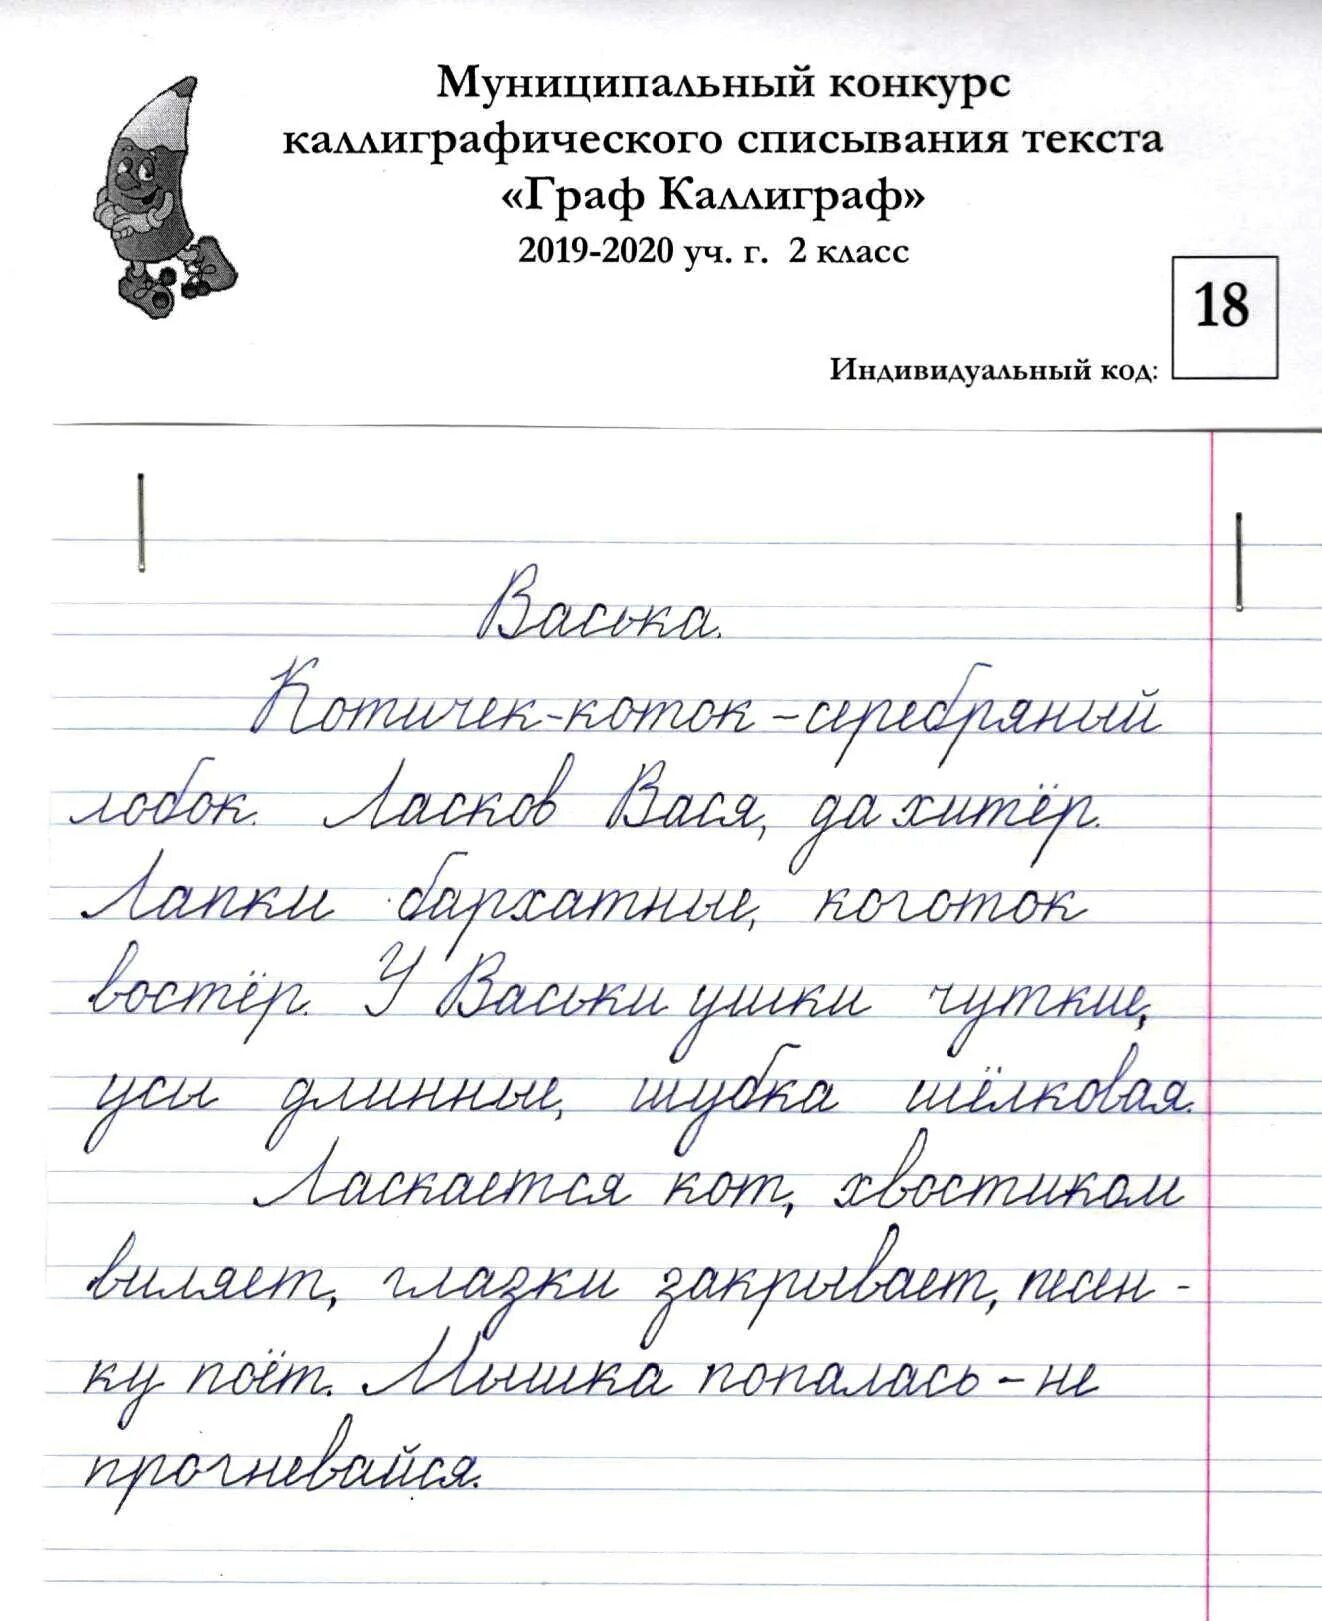 Муниципальный конкурс
каллиграфического списывания текста
«Граф Каллиграф»
2019-2020 уч. г. 2 класс
18
Индивидуальный код:
Васька.
Котичек-коток - серебряный
лобок. Ласков Вася, да хитёр.
Лапки бархатные, коготок
востёр. У Васьки ушки чуткие,
усы длинные, шубка шёлковая.
Ласкается кот, хвостиком
виляет, глазки закрывает, песен-
ку поёт. Мышка попалась - не
прогневайся.